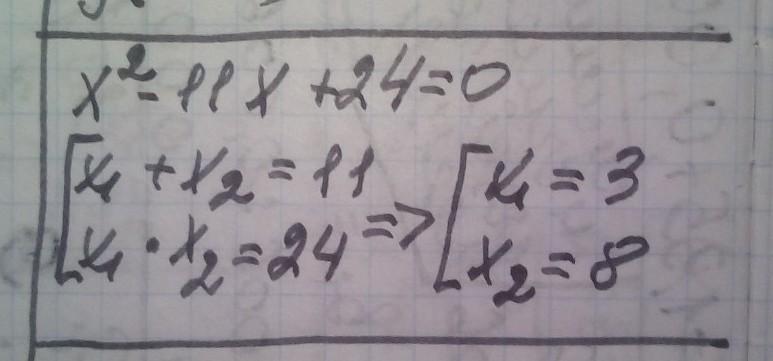 x² - 11x + 24 = 0
[x₁ + x₂ = 11
[x₁ · x₂ = 24 => [x₁ = 3
[x₂ = 8